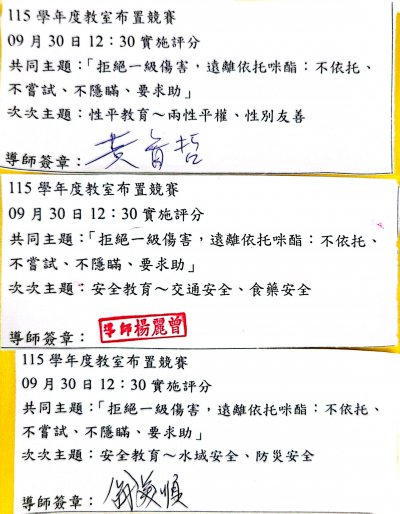 115 學年度教室布置競賽
09 月 30 日 12：30 實施評分
共同主題：「拒絕一級傷害，遠離依托咪酯：不依托、
不嘗試、不隱瞞、要求助」
次次主題：性平教育～兩性平權、性別友善
導師簽章：
115 學年度教室布置競賽
09 月 30 日 12：30 實施評分
共同主題：「拒絕一級傷害，遠離依托咪酯：不依托、
不嘗試、不隱瞞、要求助」
次次主題：安全教育～交通安全、食藥安全
導師簽章：導師楊麗曾
115 學年度教室布置競賽
09 月 30 日 12：30 實施評分
共同主題：「拒絕一級傷害，遠離依托咪酯：不依托、
不嘗試、不隱瞞、要求助」
次次主題：安全教育～水域安全、防災安全
導師簽章：